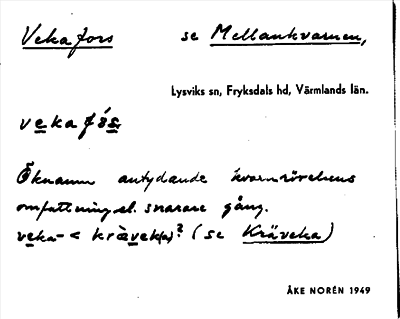 Vekafors se Mellankvarnen,
Lysviks sn, Fryksdals hd, Värmlands län.
vekafòs̩
Öknamn antydande kvarnrörelsens
omfattning el. snarare gång.
veka- < kràvek(a)? (se Kräveka)
ÅKE NORÉN 1949